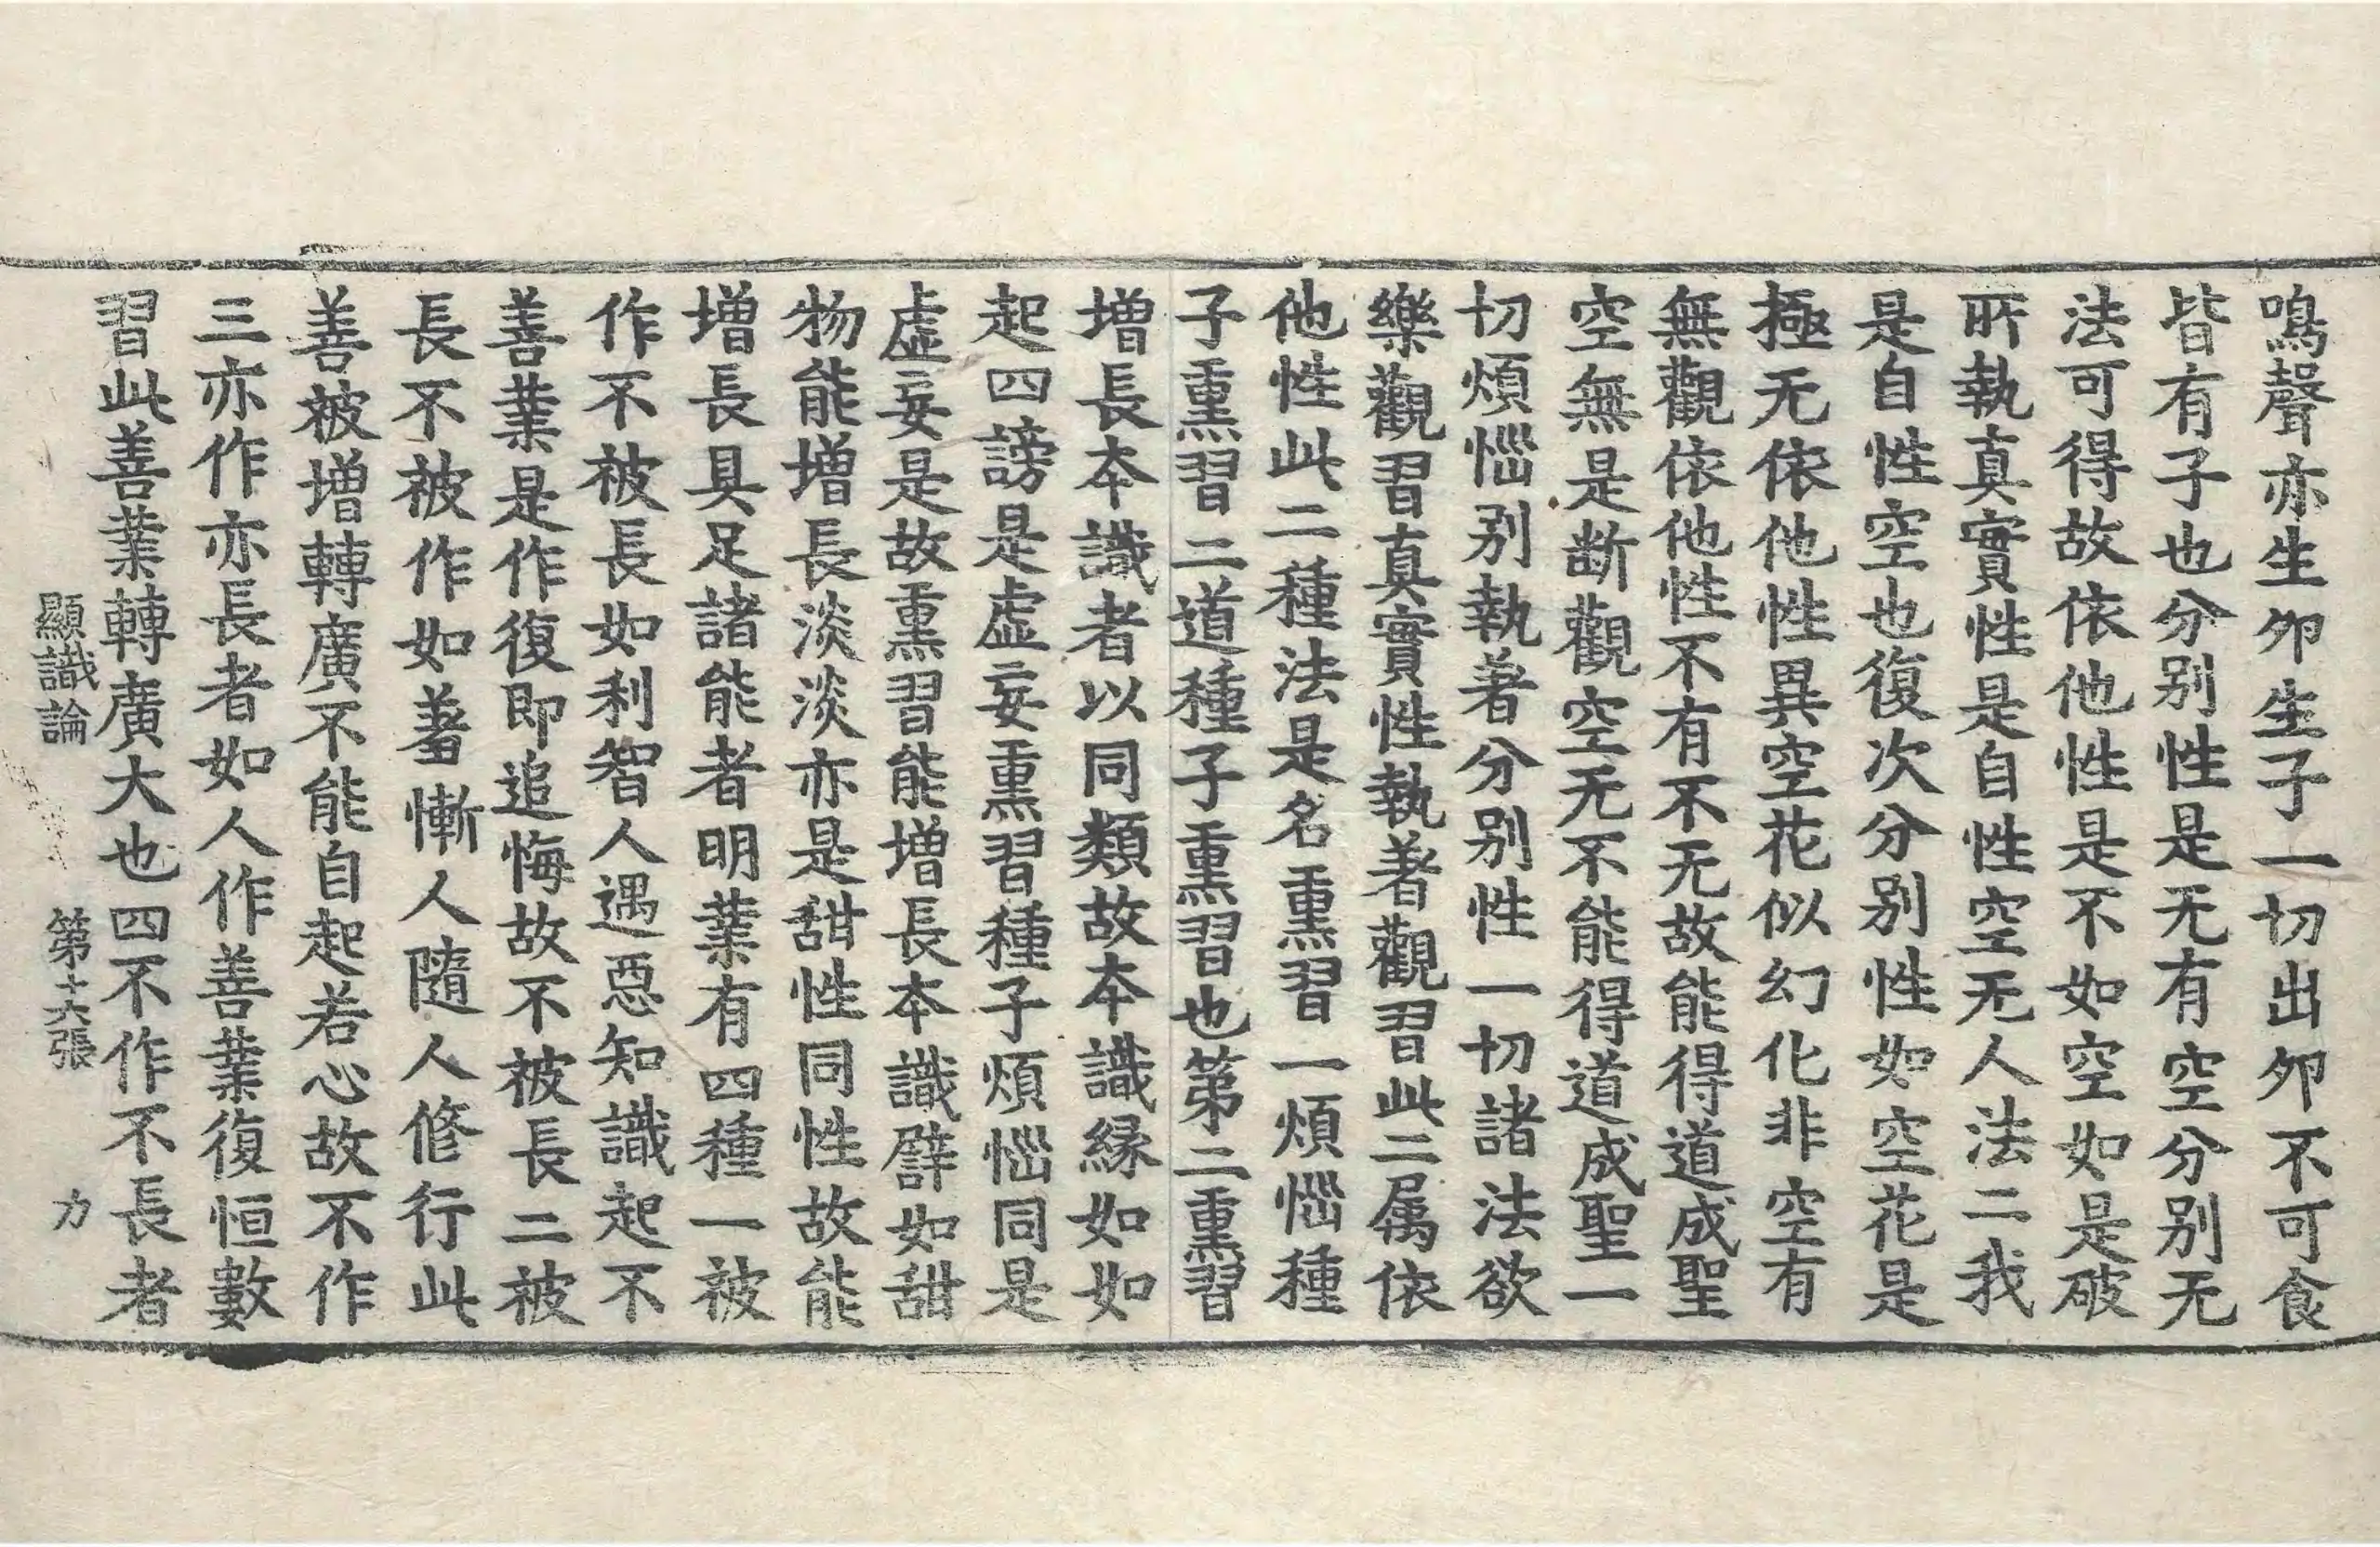 鳴聲亦生夘生子一切出夘不可食
皆有子也分别性是无有空分别无
法可得故依他性是不如空如是破
所執真實性是自性空无人法二我
是自性空也復次分别性如空花是
極无依他性異空花似幻化非空有
無觀依他性不有不无故能得道成聖
空無是断觀空无不能得道成聖一
切煩惱别執著分别性一切諸法欲
樂觀習真實性執著觀習此二属依
他性此二種法是名熏習一煩惱種
子熏習二道種子熏習也第二熏習
增長本識者以同類故本識緣如如
起四謗是虛妄熏習種子煩惱同是
虛妄是故熏習能增長本識譬如甜
物能增長淡淡亦是甜性同性故能
增長具足諸能者明業有四種一被
作不被長如利智人遇惡知識起不
善業是作復即追悔故不被長二被
長不被作如羞慚人隨人修行此
善被增轉廣不能自起若心故不作
三亦作亦長者如人作善業復恒數
習此善業轉廣大也四不作不長者
顯識論 第十六張 力